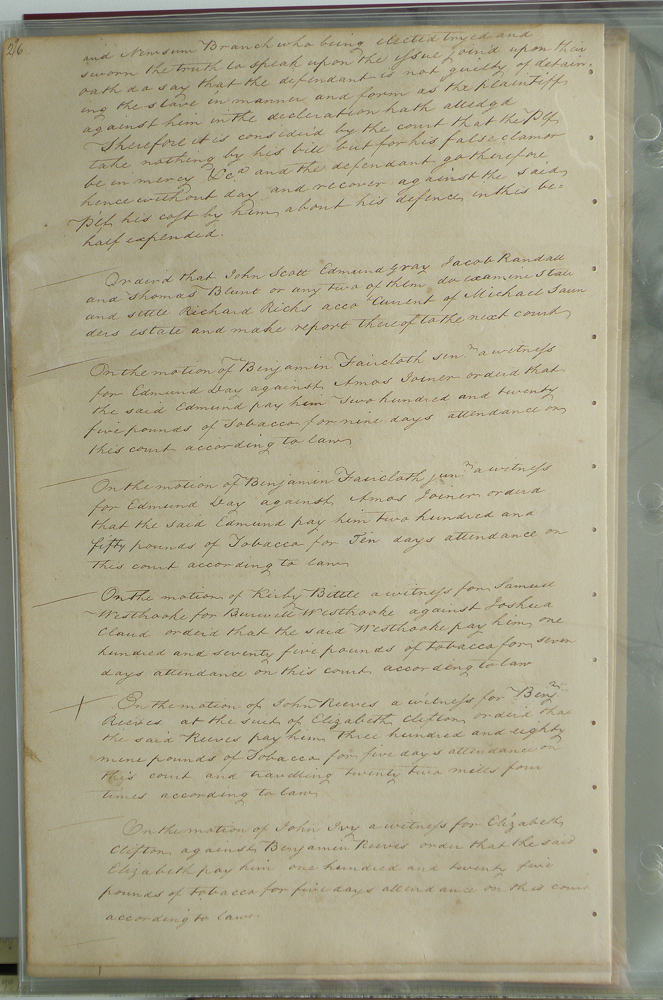 216
and Newsum Branch who being elected tryed and
sworn the truth to speak upon the issue joind upon their
oath do say that the defendant is not guilty of detain-
ing the slave in manner and form as the plaintiff
against him in the declaration hath alledgd
Therefore it is considerd by the court that the Plf
take nothing by his bill but for his false clamor
be in mercy &ca and the defendant go therefore
hence without day and recover against the said
Plf his cost by him about his defence in this be=
half expended.
Orderd that John Scott Edmund Gray Jacob Randall
and Thomas Blunt or any two of them do examine state
and settle Richard Ricks acco Current of Michael Saun
ders estate and make report thereof to the next court
On the motion of Benjamin Faircloth senr a witness
for Edmund Day against Amos Joiner orderd that
the said Edmund pay him Two hundred and twenty
five pounds of Tobacco for nine days attendance on
this court according to law
On the motion of Benjamin Faircloth junr a witness
for Edmund Day against Amos Joiner orderd
that the said Edmund pay him two hundred and
fifty pounds of Tobacco for Ten days attendance on
this court according to law
On the motion of Kirby Bittle a witness for Samuel
Westbrooke for Burwell Westbrooke against Joshua
Claud orderd that the said Westbrooke pay him one
hundred and seventy five pounds of tobacco for seven
days attendance on this court according to law
On the motion of John Reeves a witness for Benjn
Reeves at the suit of Elizabeth Clifton orderd that
the said Reeves pay him three hundred and eighty
nine pounds of Tobacco for five days attendance on
this court and travelling twenty two miles four
times according to law
On the motion of John Ivy a witness for Elizabeth
Clifton against Benjamin Reeves order that the said
Elizabeth pay him one hundred and twenty five
pounds of tobacco for five days attendance on this court
according to law.